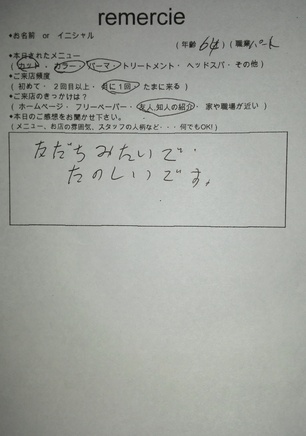 remercie
*お名前 or イニシャル
(年齢 64)(職業パート)
*本日されたメニュー
(カット・カラー・パーマ・トリートメント・ヘッドスパ・その他)
*ご来店頻度
(初めて・2回目以上・月に1回・たまに来る)
*ご来店のきっかけは?
(ホームページ・フリーペーパー・友人,知人の紹介・家や職場が近い)
*本日のご感想をお聞かせ下さい。
(メニュー、お店の雰囲気、スタッフの人柄など・・・何でもOK!)
友だちみたいで
たのしいです。